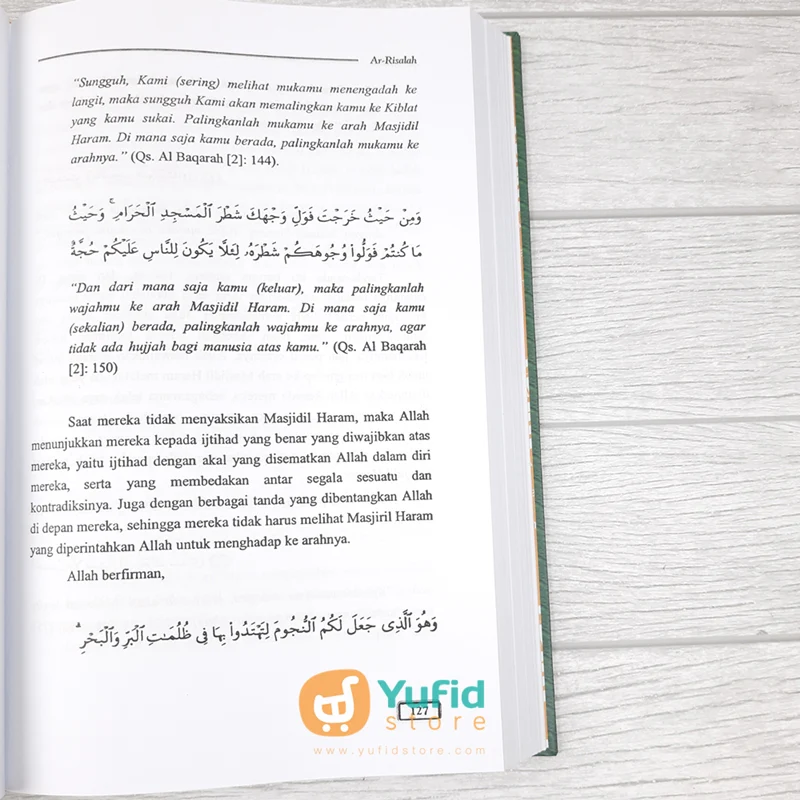 Ar-Risalah
"Sungguh, Kami (sering) melihat mukamu menengadah ke
langit, maka sungguh Kami akan memalingkan kamu ke Kiblat
yang kamu sukai. Palingkanlah mukamu ke arah Masjidil
Haram. Di mana saja kamu berada, palingkanlah mukamu ke
arahnya." (Qs. Al Baqarah [2]: 144).
وَمِنْ حَيْثُ خَرَجْتَ فَوَلِّ وَجْهَكَ شَطْرَ ٱلْمَسْجِدِ ٱلْحَرَامِ ۚ وَحَيْثُ
مَا كُنتُمْ فَوَلُّوا۟ وُجُوهَكُمْ شَطْرَهُۥ لِئَلَّا يَكُونَ لِلنَّاسِ عَلَيْكُمْ حُجَّةٌ
"Dan dari mana saja kamu (keluar), maka palingkanlah
wajahmu ke arah Masjidil Haram. Di mana saja kamu
(sekalian) berada, palingkanlah wajahmu ke arahnya, agar
tidak ada hujjah bagi manusia atas kamu." (Qs. Al Baqarah
[2]: 150)
Saat mereka tidak menyaksikan Masjidil Haram, maka Allah
menunjukkan mereka kepada ijtihad yang benar yang diwajibkan atas
mereka, yaitu ijtihad dengan akal yang disematkan Allah dalam diri
mereka, serta yang membedakan antar segala sesuatu dan
kontradiksinya. Juga dengan berbagai tanda yang dibentangkan Allah
di depan mereka, sehingga mereka tidak harus melihat Masjiril Haram
yang diperintahkan Allah untuk menghadap ke arahnya.
Allah berfirman,
وَهُوَ ٱلَّذِى جَعَلَ لَكُمُ ٱلنُّجُومَ لِتَهْتَدُوا۟ بِهَا فِى ظُلُمَـٰتِ ٱلْبَرِّ وَٱلْبَحْرِ ۗ
127
Yufid
store
www.yufidstore.com